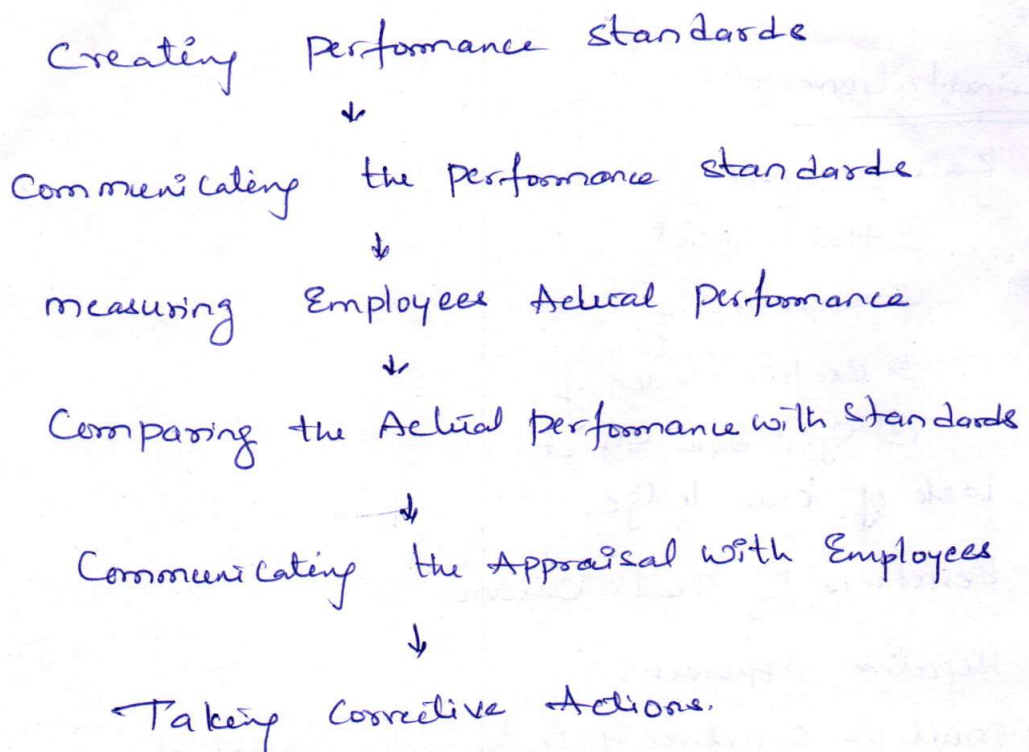 Creating Performance standards
↓
Communicating the performance standards
↓
measuring Employees Actual Performance
↓
Comparing the Actual performance with standards
↓
Communicating the Appraisal with Employees
↓
Taking Corrective Actions.